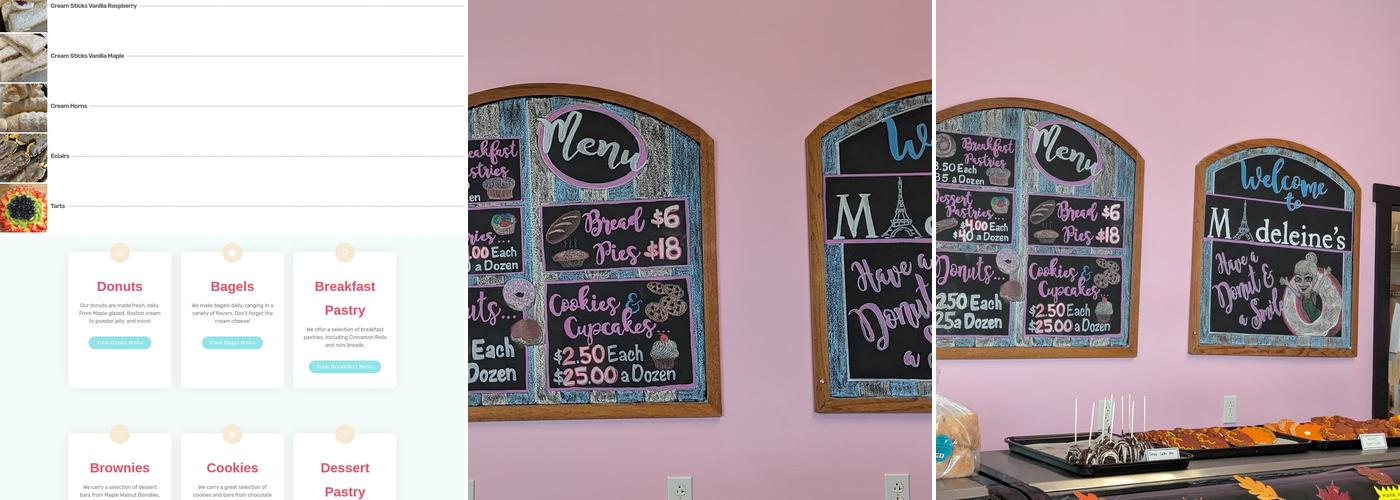 Cream Sticks Vanilla Raspberry
Cream Sticks Vanilla Maple
Cream Horns
Eclairs
Tarts
Donuts
Our donuts are made fresh, daily.
From Maple glazed, Boston cream
to powder jelly, and more!
View Donut Menu
Bagels
We make bagels daily, ranging in a
variety of flavors. Don't forget the
cream cheese!
View Bagel Menu
Breakfast
Pastry
We offer a selection of breakfast
pastries, including Cinnamon Rolls
and mini breads.
View Breakfast Menu
Brownies
We carry a selection of dessert
bars from Maple Walnut Blondies,
Cookies
We carry a great selection of
cookies and bars from chocolate
Dessert
Pastry
Menu
Bread $6
Pies $18
Cookies &
Cupcakes...
$2.50 Each
$25.00 a Dozen
Each
Dozen
W
M
Have a
Donut
a
Breakfast
Pastries
3.50 Each
35 a Dozen
Dessert
Pastries...
$4.00 Each
$40 a Dozen
Donuts...
250 Each
25 a Dozen
Menu
Bread $6
Pies $18
Cookies &
Cupcakes...
$2.50 Each
$25.00 a Dozen
Welcome
to
Madeleine's
Have a
Donut &
a Smile